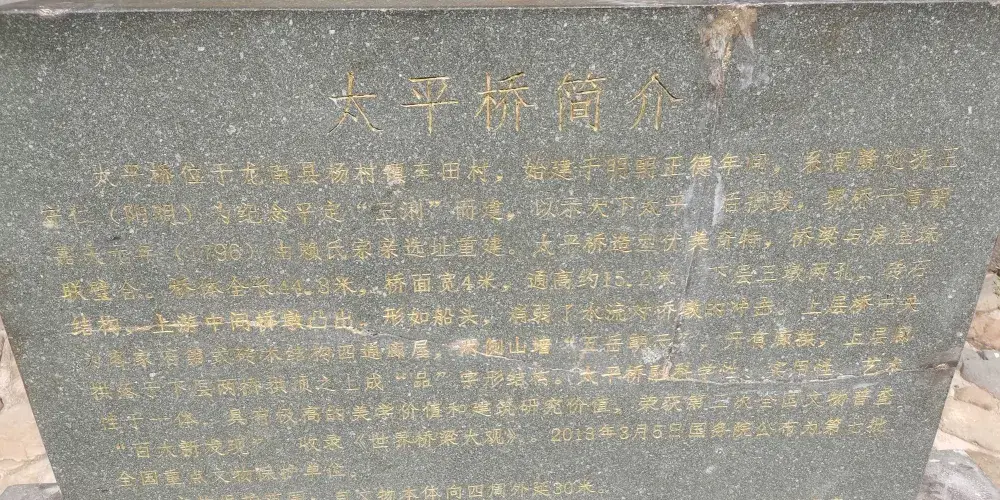 太平桥简介
太平桥位于龙南县杨村镇车田村，始建于明朝正德年间，系南赣巡抚王
守仁（阳明）为纪念平定“三浰”而建，以示天下太平。后被毁，现桥一音
嘉庆元年（1796）由赖氏家族选址重建。太平桥造型优美奇特，桥梁与房屋珠
联璧合。桥体全长44.8米，桥面宽4米，通高约15.2米，下层三墩两孔，
结构，上游中间桥墩凸出，形如船头，消弱了水流对桥墩的冲击。上层桥中央
为客家 砖木结构四通 屋，两侧山墙“五岳朝天”，开有 ，上层
拱恋于下层两桥拱顶之上成“品”字形结构。太平桥 科学性、实用性、艺术
性于一体，具有极高的美学价值和建筑研究价值，荣获第三次全国文物普查
“百大新发现”，收录《世界桥梁大观》。2013年3月5日国务院公布为第七批
全国重点文物保护单位。
保护范围：自文物本体向四周外延30米。